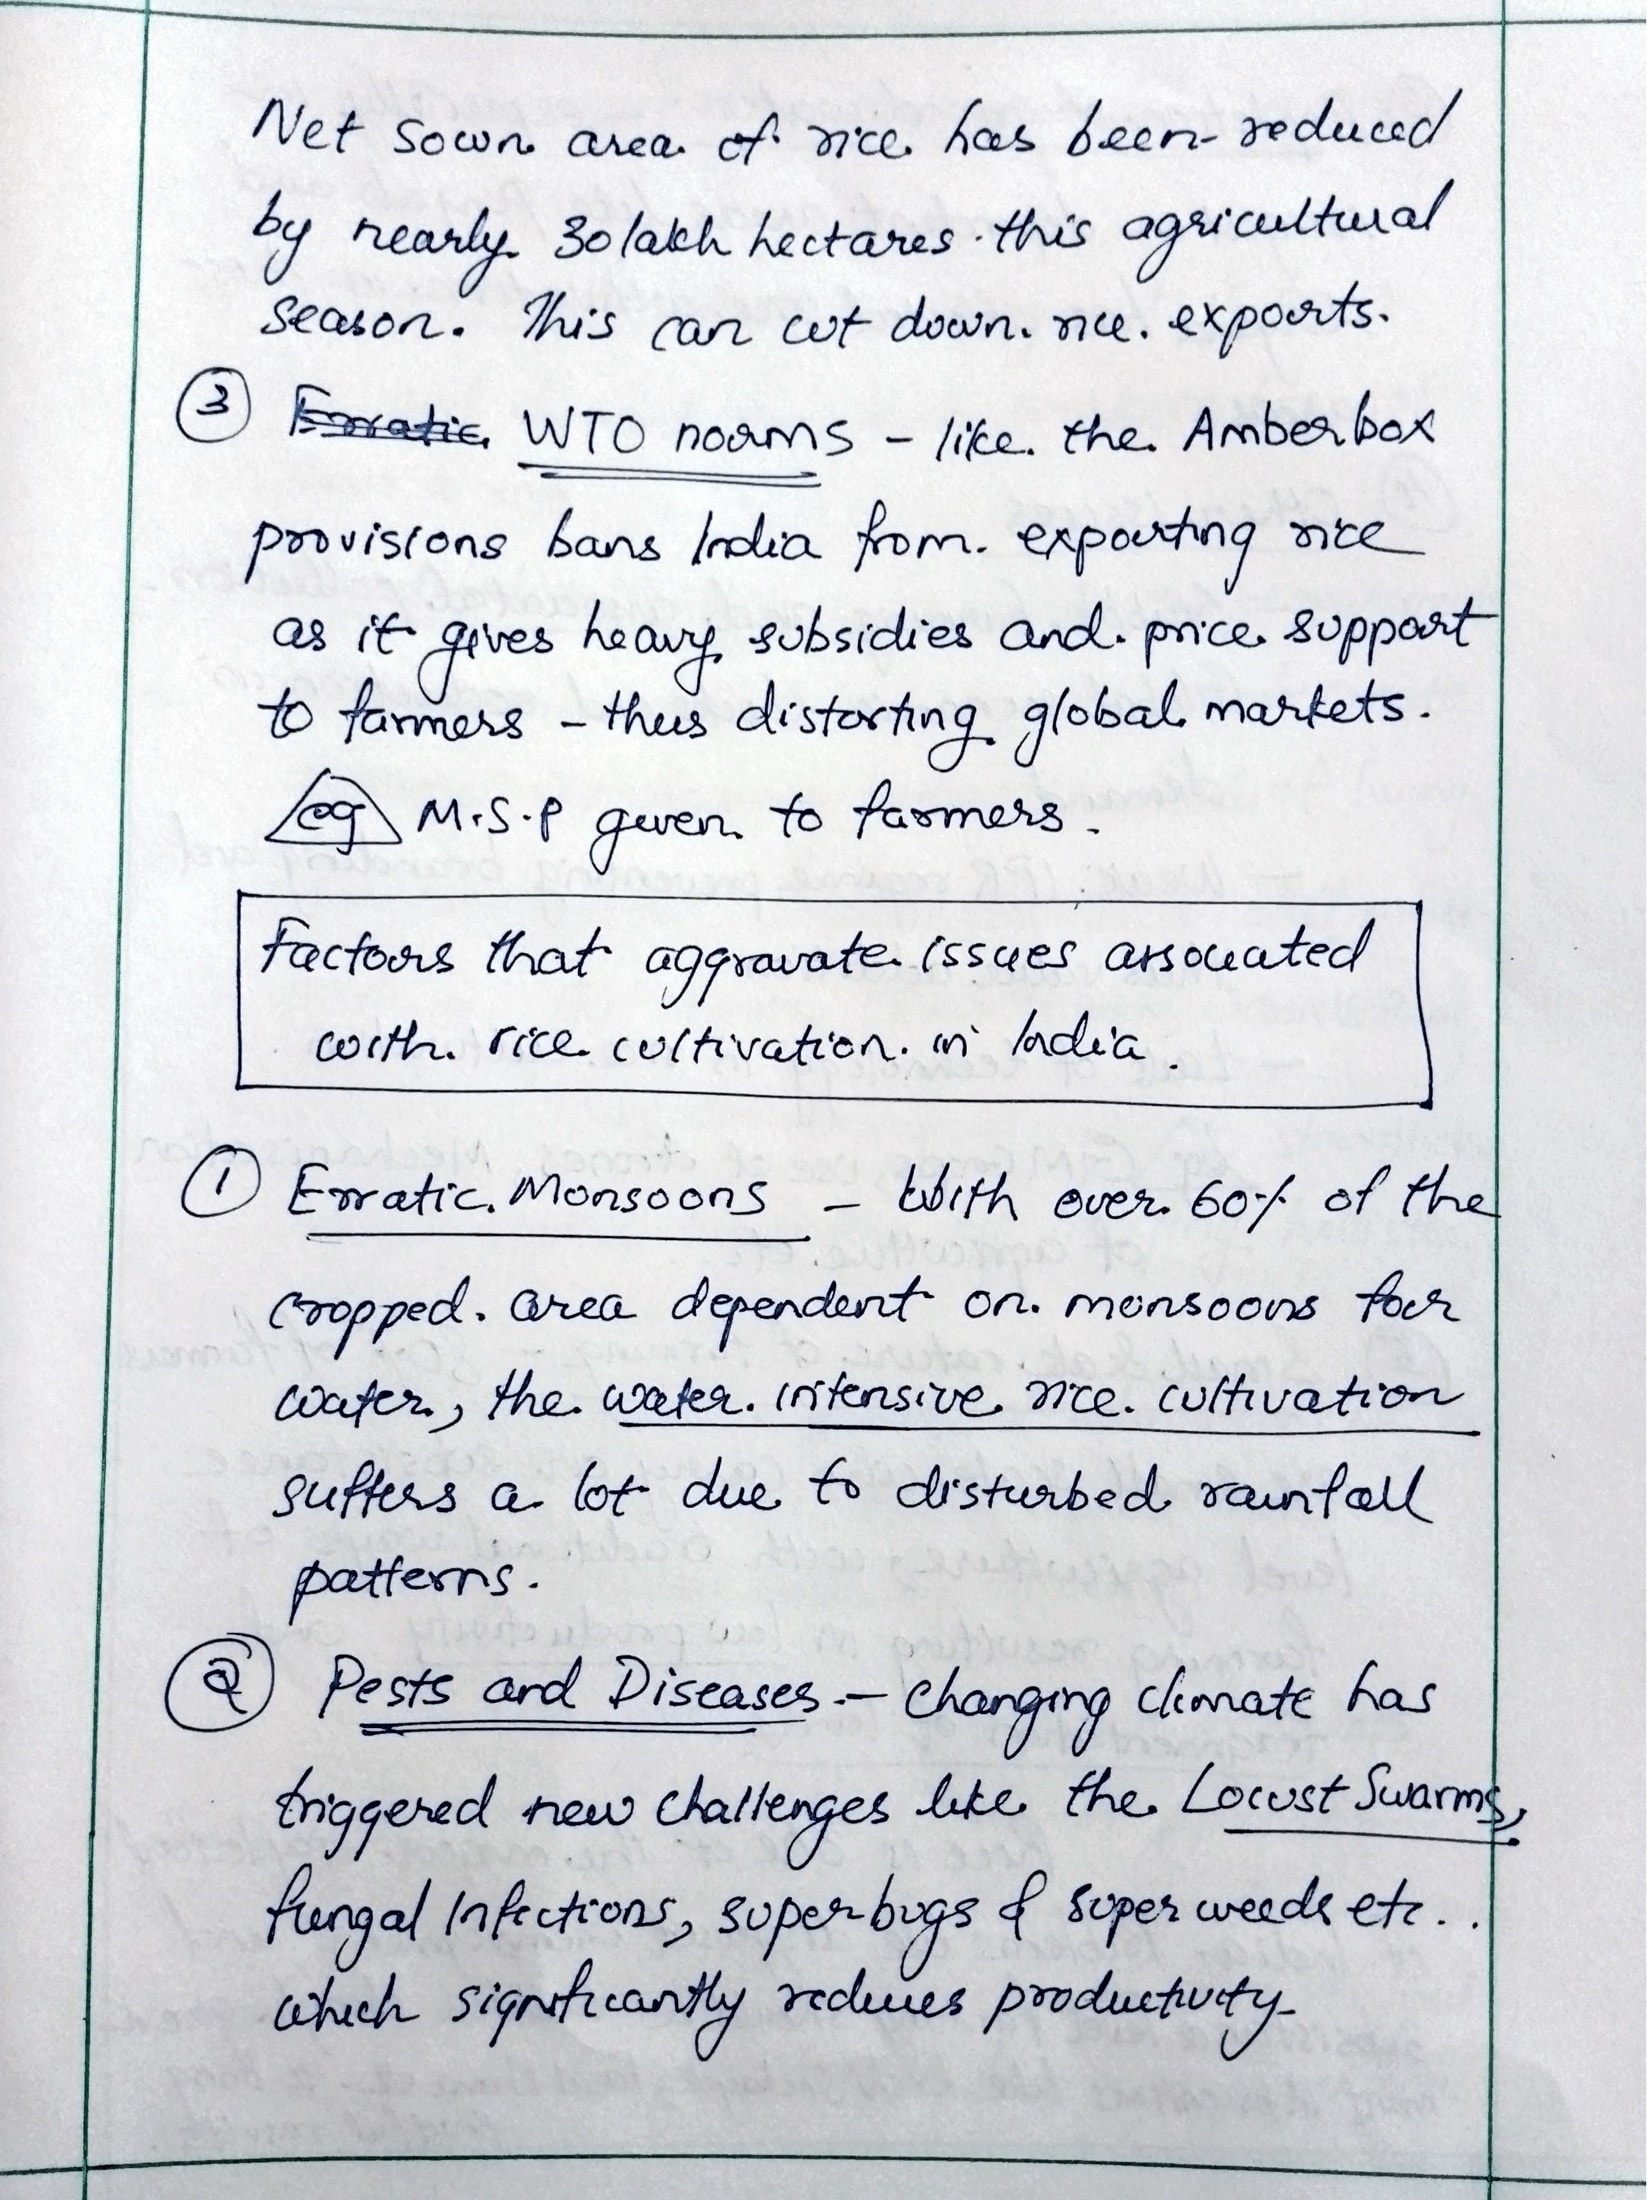 Net sown area of rice has been reduced
by nearly 30 lakh hectares this agricultural
season. This can cut down rice exports.
3 Erratic WTO norms - like the Amberbox
provisions bans India from exporting rice
as it gives heavy subsidies and price support
to farmers - thus distorting global markets.
eg M.S.P given to farmers.
Factors that aggravate issues associated
with rice cultivation in India.
1 Erratic Monsoons - With over 60% of the
cropped area dependent on monsoons for
water, the water intensive rice cultivation
suffers a lot due to disturbed rainfall
patterns.
2 Pests and Diseases - Changing climate has
triggered new challenges like the Locust Swarms,
fungal Infections, superbugs & super weeds etc..
which significantly reduces productivity